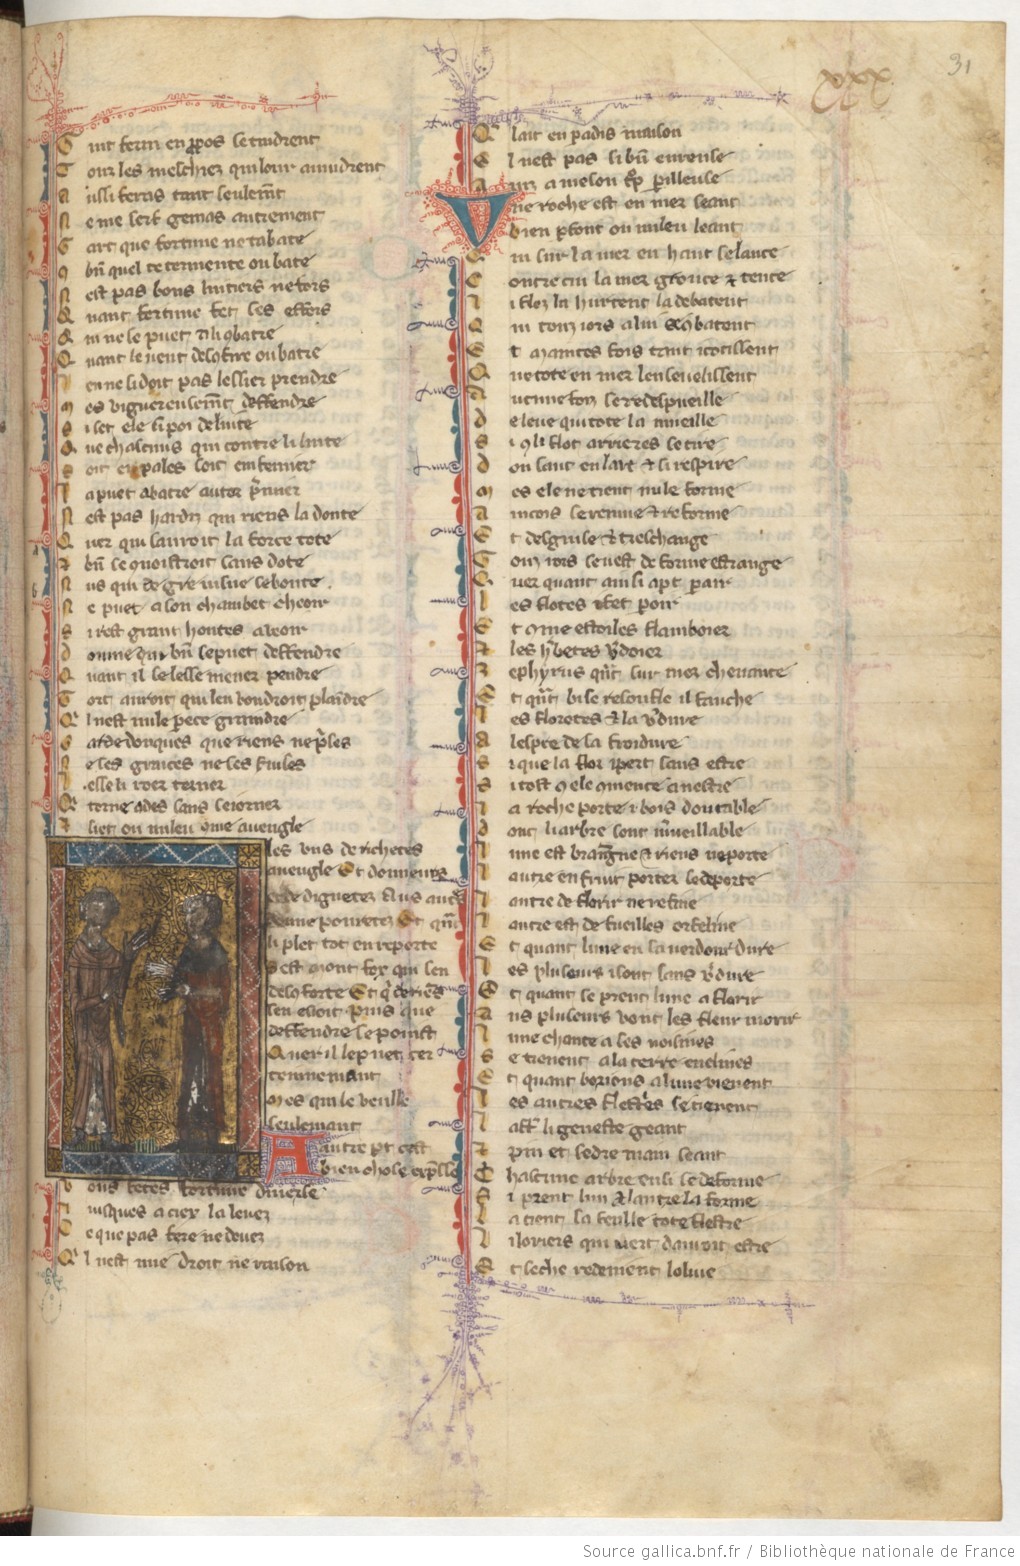 31
XXX
Tour les meschiez qui lour auiudrent
Aussi feras tant seulemt
Ne me sert gemas autrement
Gart que fortune ne tabate
9bn quel te termente ou bate
Nest pas bons luitiers ne fors
Quant fortune fet ses effors
Quant le uient
len ne li doit pas lessier prendre
Mes viguereusemt deffendre
Que chascuns qui contre li luite
Soit en pales soit en fumier
La puet abatre au tor pmier
Nest pas hardiz qui riens la doute
Quer qui sauroit sa force tote
Et bn se quoistroit sans dote
Nus qui de gre ius ne se boute
Ne puet a son chambet cheoir
Si rest grant hontes a veoir
Domme qui bn se puet deffendre
Quant il se lesse mener pendre
Tort auroit qui len voudroit plaidre
Quil nest nule perece graindre
Garde donques que riens ne prises
Ne ses graces ne ses seruises
Lesse li roer torner
Quel torne ades sans seiorner
Et siet ou milieu 9me auengle
les vns de richeces
auengle Et donneurs
Et de dignetez Aus autres
donne pouretez Et qnt
li plet tot en reporte
Sest mont fox qui sen
des9forte Et q de riens
sen esioit Puis que
deffendre se poist
Quer il le puet cer
tennemant
Mes qui le veille
seulemant
Autre pt cest
bien chose expsse
Vous fetes fortune diuesse
Iusques a ciex la leuez
Ce que pas fere ne deuez
Quil nest mie droit ne raison
Quel ait en padis maison
El nest pas si bn eureuse
Ainz a meson trop perilleuse
Vne roche est en mer seant
Bien pfont ou milieu leant
Qui sur la mer en haut se lance
Contre cui la mer gronce & tence
Li floz la hurtent la debatent
Qui touz iors a lui se 9batent
Et maintes fois tant i cotissent
Que tote en mer lenseuelissent
Aucune foiz se redespueille
De leue qui tote la mueille
Si 9 li flot arrieres se tire
Don saut en lair & si respire
Mes ele ne tient nule forme
Aincois se remue & reforme
Et desguise & treschange
Touz iors se uest de forme estrange
Quer quant ainsi apt par air
Les flotes i fet poir
Et 9me estoiles flamboier
Et les hbetes vdoier
Zephyrus qnt sur mer cheuauce
Et qnt bise resoufle il fauche
Les floretes & la vdure
A lespee de sa froidure
Si que la flor i pert sans estre
Si tost 9 ele 9mence a nestre
La roche porte i bois doutable
Dont li arbre sont mueillable
Lune est brahaigne & riens ne porte
Lautre en fruit porter se deporte
Lautre de florir ne refine
Lautre est de fueilles orfeline
Et quant lune en sa verdour dure
Les pluseurs i sont sans vdure
Et quant se prent lune a florir
Aus pluseurs vont les fleur morir
Lune hauce a les voisines
Se tienent a la terre enclines
Et quant borions a lune vienent
Les autres flestres se tienent
Laff li geneste geant
Et pin et sedre nain seant
Chascune arbre ensi se deforme
Et prent lun & lautre la forme
La tient sa feulle tote flestre
Li loriers qui vert dauroit estre
Et seche redeuient loliue
Source gallica.bnf.fr / Bibliothèque nationale de France